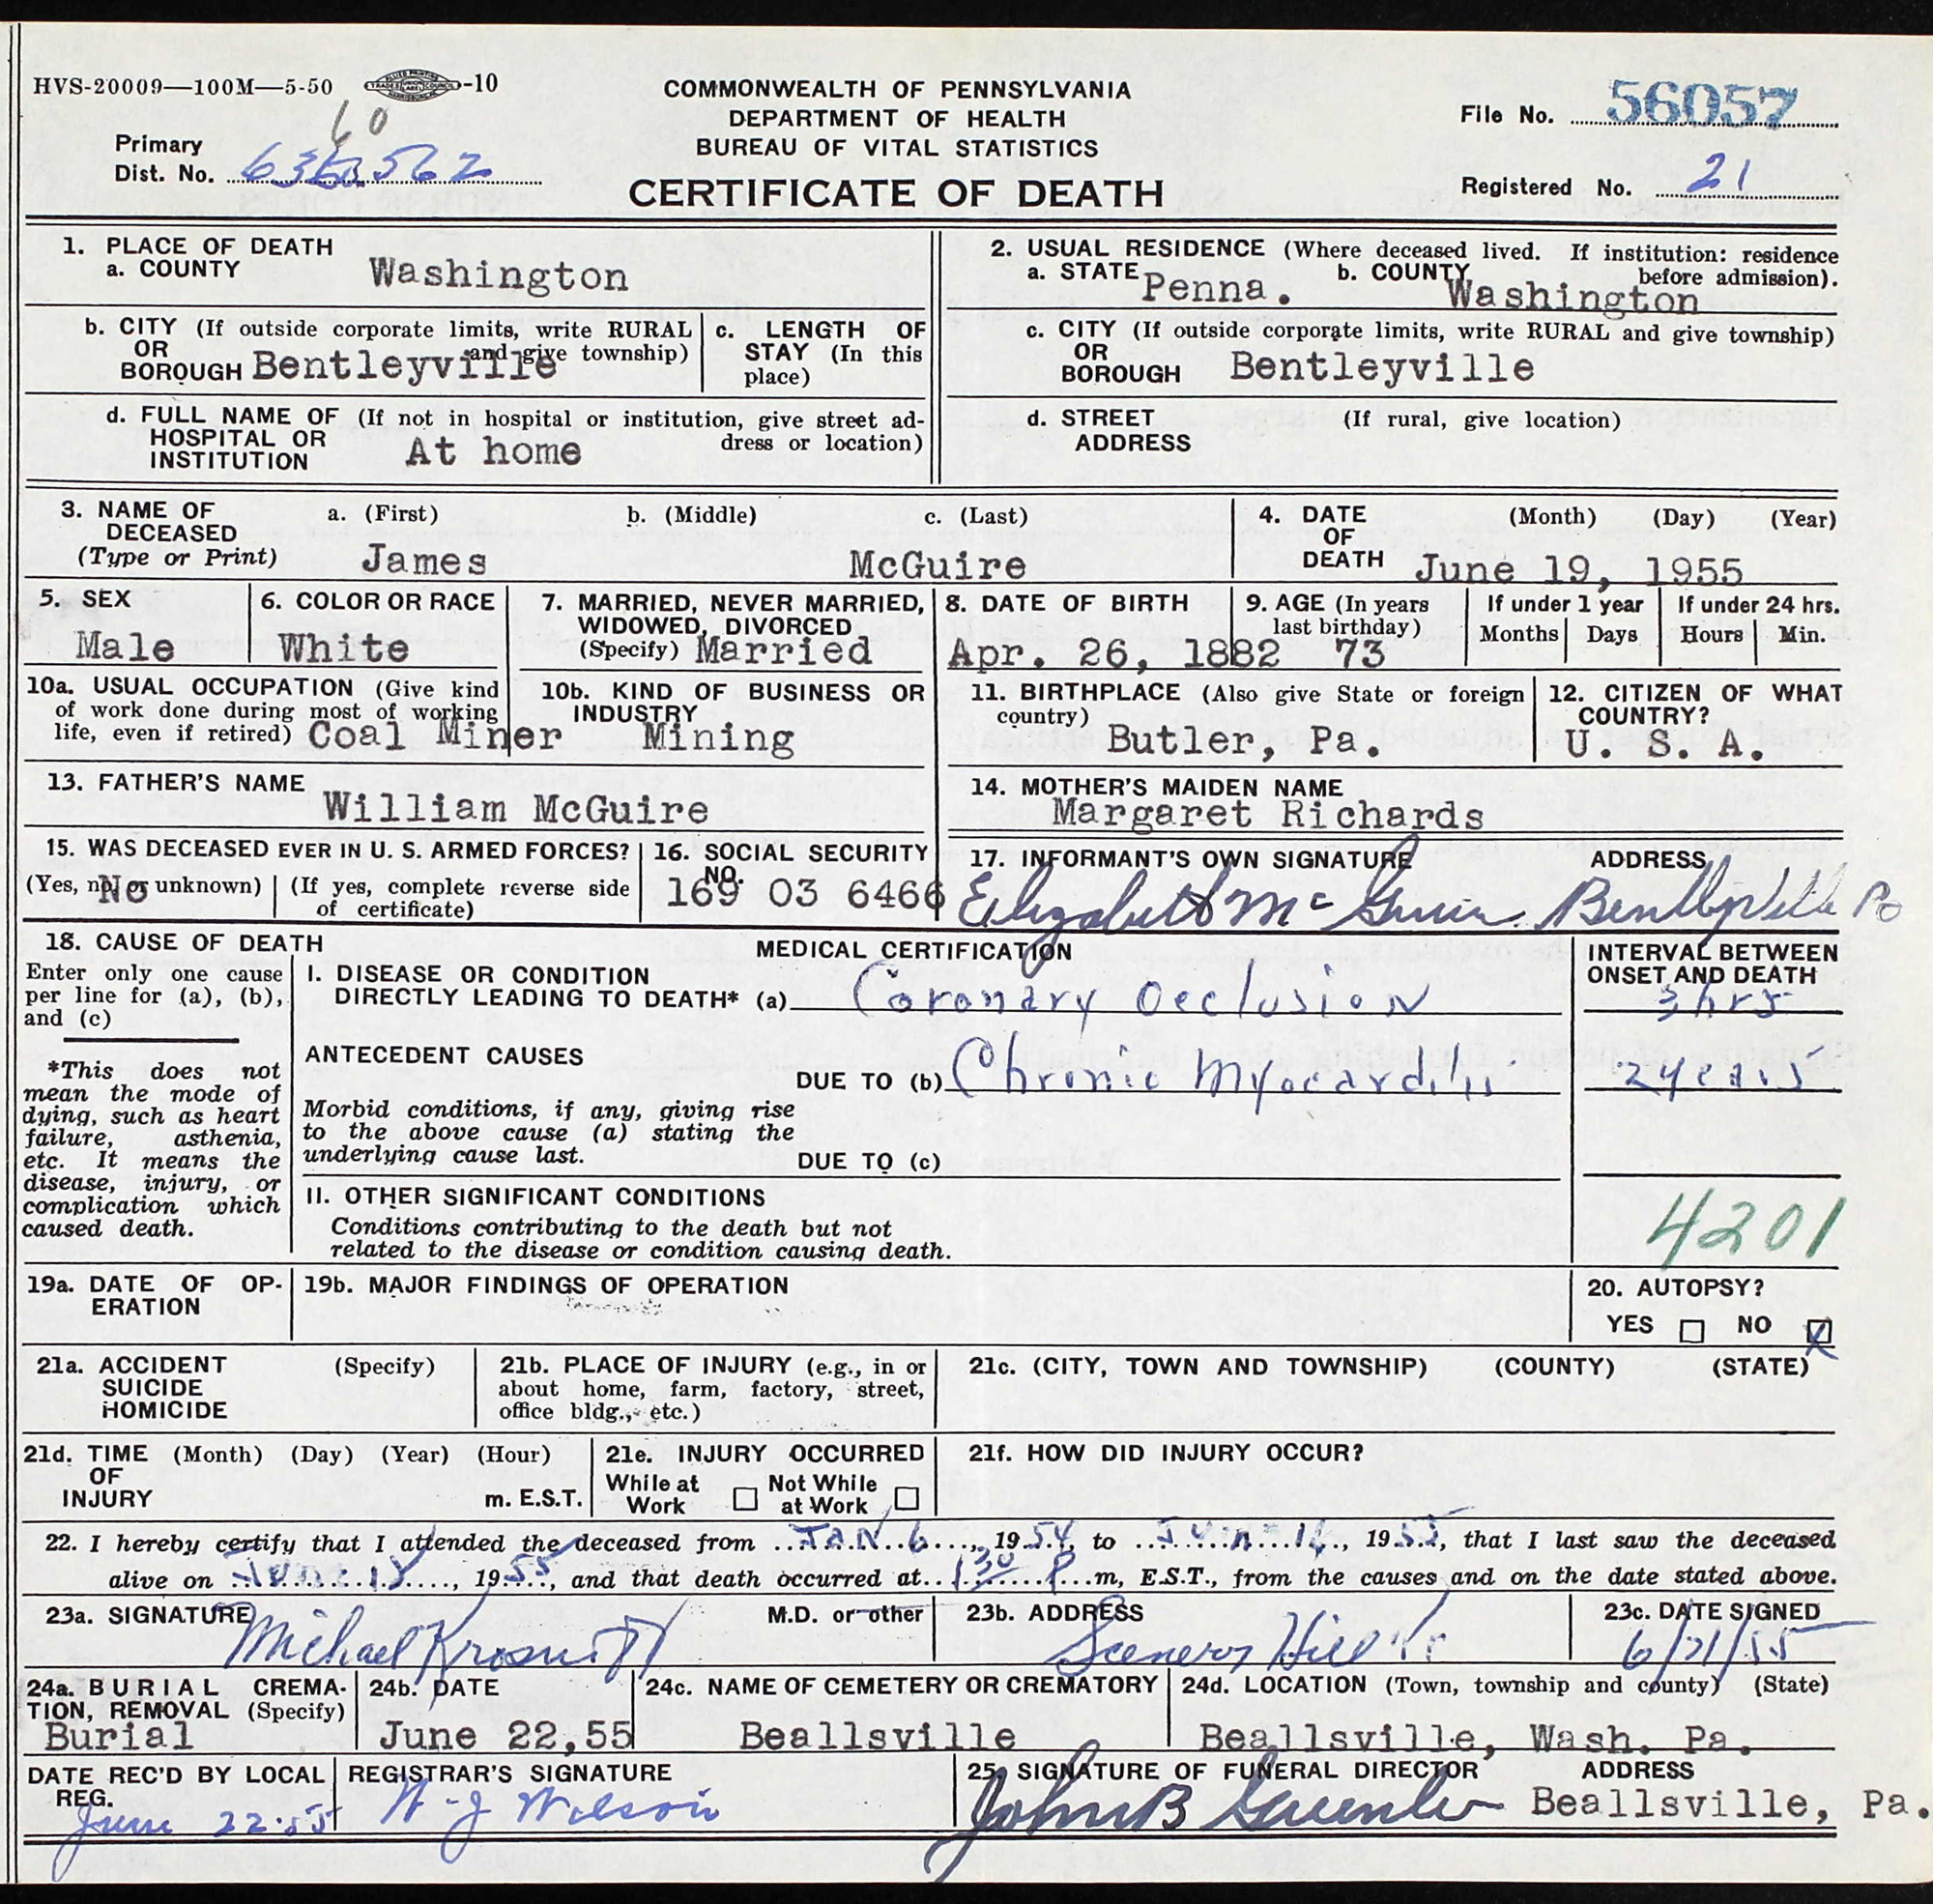 HVS-20009—100M—5-50 -10
COMMONWEALTH OF PENNSYLVANIA
DEPARTMENT OF HEALTH
BUREAU OF VITAL STATISTICS
CERTIFICATE OF DEATH
60
Primary
Dist. No. 562
File No. 56057
Registered No. 21
1. PLACE OF DEATH
a. COUNTY Washington
b. CITY (If outside corporate limits, write RURAL
OR and give township)
BOROUGH Bentleyville
c. LENGTH OF
STAY (In this
place)
d. FULL NAME OF (If not in hospital or institution, give street ad-
HOSPITAL OR dress or location)
INSTITUTION At home
2. USUAL RESIDENCE (Where deceased lived. If institution: residence
before admission).
a. STATE Penna. b. COUNTY Washington
c. CITY (If outside corporate limits, write RURAL and give township)
OR
BOROUGH Bentleyville
d. STREET (If rural, give location)
ADDRESS
3. NAME OF a. (First) b. (Middle) c. (Last)
DECEASED
(Type or Print) James McGuire
4. DATE (Month) (Day) (Year)
OF
DEATH June 19, 1955
5. SEX
Male
6. COLOR OR RACE
White
7. MARRIED, NEVER MARRIED,
WIDOWED, DIVORCED
(Specify) Married
8. DATE OF BIRTH
Apr. 26, 1882
9. AGE (In years
last birthday)
73
If under 1 year
Months Days
If under 24 hrs.
Hours Min.
10a. USUAL OCCUPATION (Give kind
of work done during most of working
life, even if retired) Coal Miner
10b. KIND OF BUSINESS OR
INDUSTRY
Mining
11. BIRTHPLACE (Also give State or foreign
country)
Butler, Pa.
12. CITIZEN OF WHAT
COUNTRY?
U. S. A.
13. FATHER'S NAME
William McGuire
14. MOTHER'S MAIDEN NAME
Margaret Richards
15. WAS DECEASED EVER IN U. S. ARMED FORCES?
(Yes, no, or unknown) No (If yes, complete reverse side
of certificate)
16. SOCIAL SECURITY
NO.
169 03 6466
17. INFORMANT'S OWN SIGNATURE ADDRESS
Elizabeth McGuire Bentleyville Pa
18. CAUSE OF DEATH
Enter only one cause
per line for (a), (b),
and (c)
*This does not
mean the mode of
dying, such as heart
failure, asthenia,
etc. It means the
disease, injury, or
complication which
caused death.
MEDICAL CERTIFICATION
I. DISEASE OR CONDITION
DIRECTLY LEADING TO DEATH* (a) Coronary Occlusion
ANTECEDENT CAUSES
DUE TO (b) Chronic Myocarditis
Morbid conditions, if any, giving rise
to the above cause (a) stating the
underlying cause last.
DUE TO (c)
II. OTHER SIGNIFICANT CONDITIONS
Conditions contributing to the death but not
related to the disease or condition causing death.
INTERVAL BETWEEN
ONSET AND DEATH
3 hrs
2 years
4201
19a. DATE OF OP-
ERATION
19b. MAJOR FINDINGS OF OPERATION
20. AUTOPSY?
YES NO X
21a. ACCIDENT (Specify)
SUICIDE
HOMICIDE
21b. PLACE OF INJURY (e.g., in or
about home, farm, factory, street,
office bldg., etc.)
21c. (CITY, TOWN AND TOWNSHIP) (COUNTY) (STATE)
21d. TIME (Month) (Day) (Year) (Hour)
OF
INJURY m. E.S.T.
21e. INJURY OCCURRED
While at Not While
Work at Work
21f. HOW DID INJURY OCCUR?
22. I hereby certify that I attended the deceased from JAN 6, 1954, to June, 1955, that I last saw the deceased
alive on June, 1955, and that death occurred at 1 30 P m, E.S.T., from the causes and on the date stated above.
23a. SIGNATURE M.D. or other
Michael
23b. ADDRESS
Scenery Hill
23c. DATE SIGNED
6/21/55
24a. BURIAL CREMA-
TION, REMOVAL (Specify)
Burial
24b. DATE
June 22,55
24c. NAME OF CEMETERY OR CREMATORY
Beallsville
24d. LOCATION (Town, township and county) (State)
Beallsville, Wash. Pa.
DATE REC'D BY LOCAL
REG.
June 22-55
REGISTRAR'S SIGNATURE
W-J Wilson
25. SIGNATURE OF FUNERAL DIRECTOR ADDRESS
John B Beallsville, Pa.